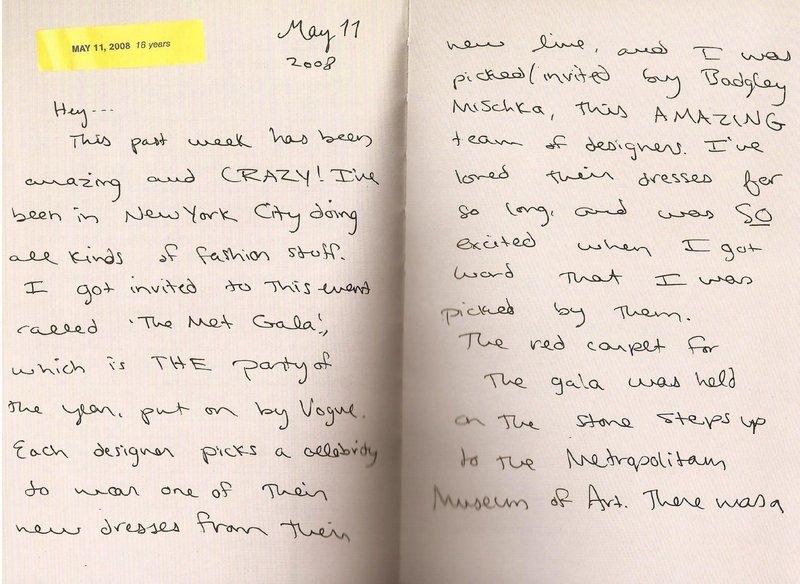 MAY 11, 2008 18 years
May 11
2008
Hey---
This past week has been
amazing and CRAZY! I've
been in New York City doing
all kinds of fashion stuff.
I got invited to this event
called 'The Met Gala',
which is THE party of
the year, put on by Vogue.
Each designer picks a celebrity
to wear one of their
new dresses from their
new line, and I was
picked/invited by Badgley
Mischka, this AMAZING
team of designers. I've
loved their dresses for
so long, and was SO
excited when I got
word that I was
picked by them.
The red carpet for
the gala was held
on the stone steps up
to the Metropolitan
Museum of Art. There was a